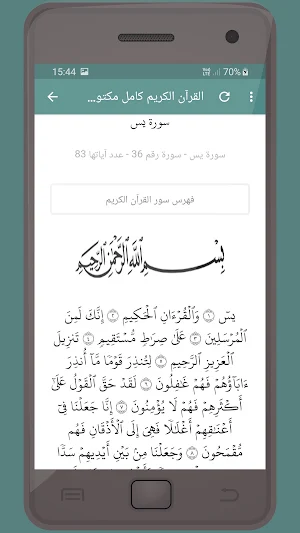 15:44 70%
القرآن الكريم كامل مكتو...
سورة يس
سورة يس - سورة رقم 36 - عدد آياتها 83
فهرس سور القرآن الكريم
بِسْمِ اللَّهِ الرَّحْمَٰنِ الرَّحِيمِ
يسٓ ۝١ وَٱلْقُرْءَانِ ٱلْحَكِيمِ ۝٢ إِنَّكَ لَمِنَ
ٱلْمُرْسَلِينَ ۝٣ عَلَىٰ صِرَٰطٍ مُّسْتَقِيمٍ ۝٤ تَنزِيلَ
ٱلْعَزِيزِ ٱلرَّحِيمِ ۝٥ لِتُنذِرَ قَوْمًا مَّآ أُنذِرَ
ءَابَآؤُهُمْ فَهُمْ غَٰفِلُونَ ۝٦ لَقَدْ حَقَّ ٱلْقَوْلُ عَلَىٰٓ
أَكْثَرِهِمْ فَهُمْ لَا يُؤْمِنُونَ ۝٧ إِنَّا جَعَلْنَا فِىٓ
أَعْنَٰقِهِمْ أَغْلَٰلًا فَهِىَ إِلَى ٱلْأَذْقَانِ فَهُم
مُّقْمَحُونَ ۝٨ وَجَعَلْنَا مِنۢ بَيْنِ أَيْدِيهِمْ سَدًّا